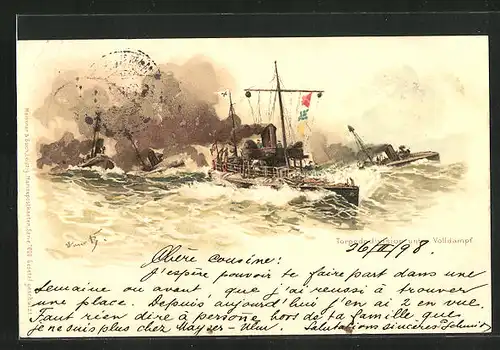 Torpedo-Division unter Volldampf
26/II/98.
Chère cousine:
J'espère pouvoir te faire part dans une
semaine ou avant, que j'ai reussi à trouver
une place. Depuis aujourd'hui j'en ai 2 en vue.
Faut rien dire à persoñe hors de ta famille que
je ne suis plus chez Mayser-Ulm. Salutations sincères